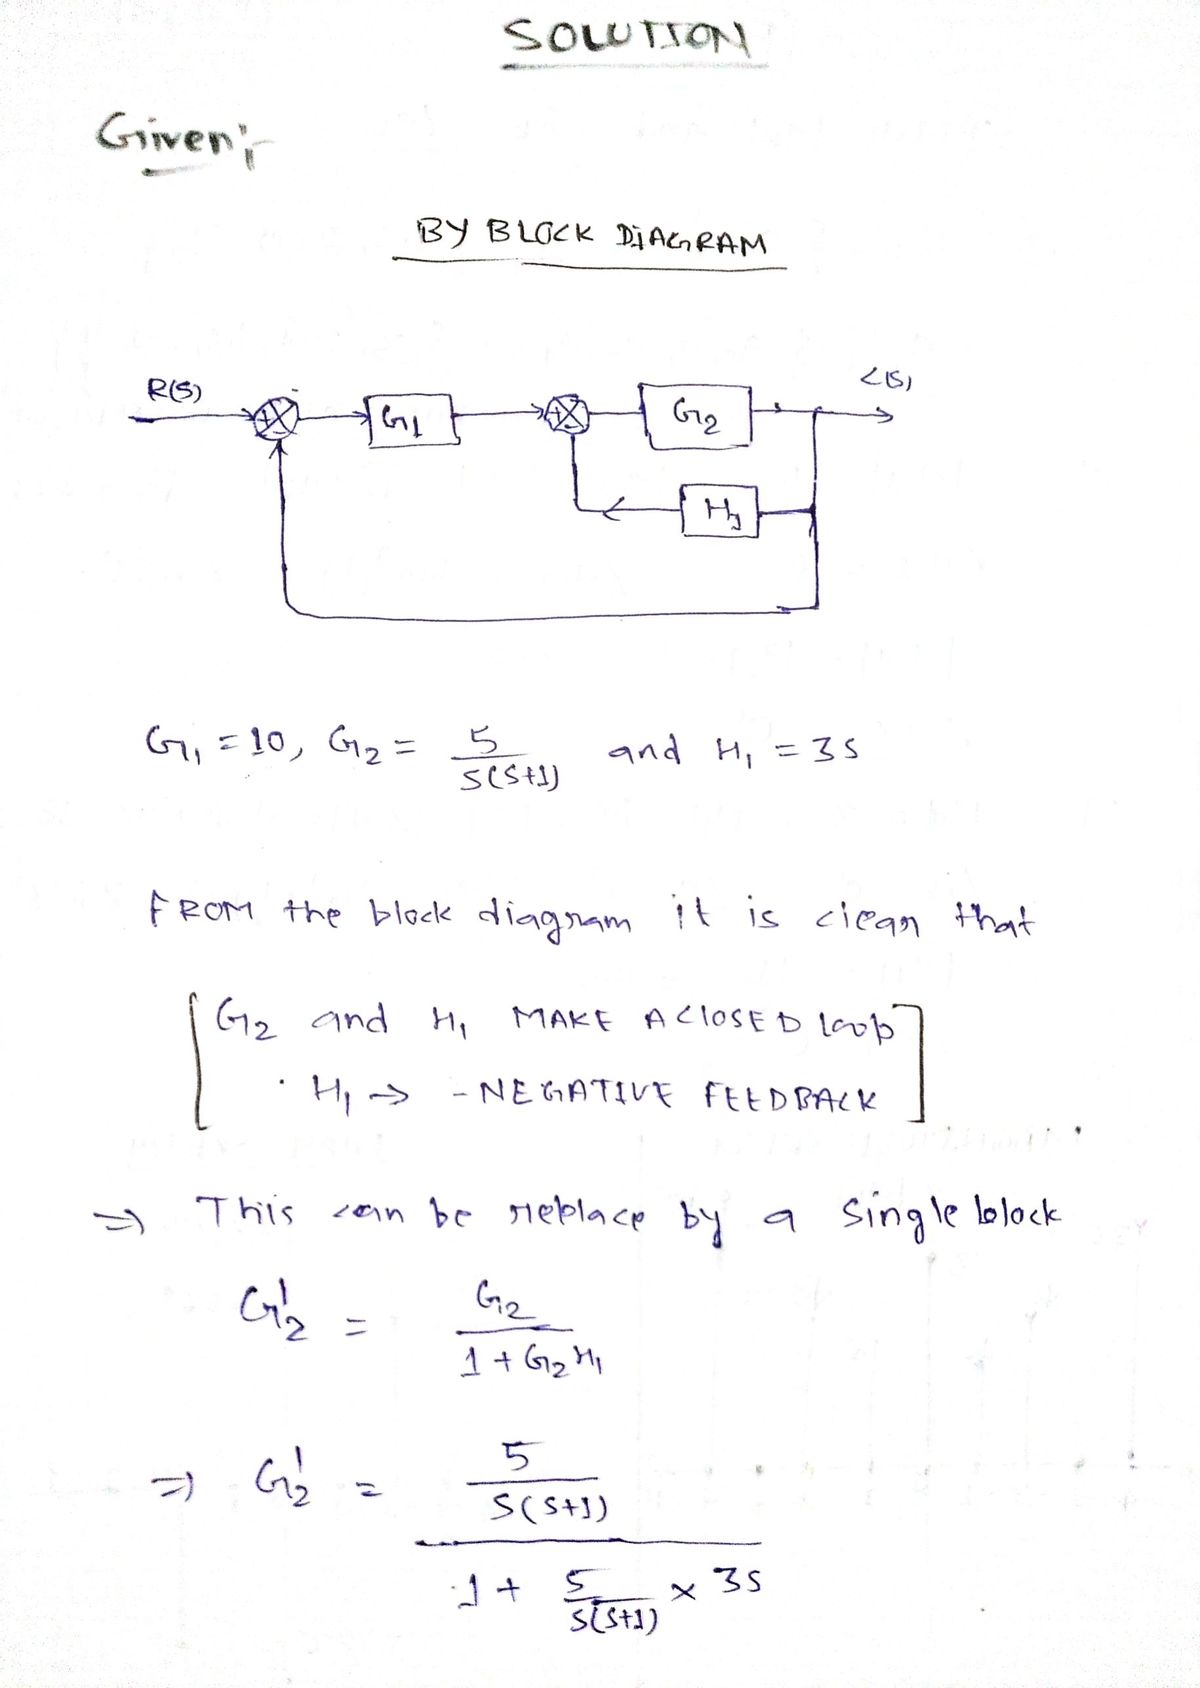 SOLUTION
Given:-
BY BLOCK DIAGRAM
R(S) + - G1 + - G2 C(S)
H1
G1 = 10, G2 = 5/S(S+1) and H1 = 3S
FROM the block diagram it is clear that
[G2 and H1 MAKE A CLOSED loop
· H1 → - NEGATIVE FEEDBACK]
⇒ This can be replace by a single block
G2' = G2/(1 + G2 H1)
⇒ G2' = (5/S(S+1))/(1 + 5/S(S+1) × 3S)